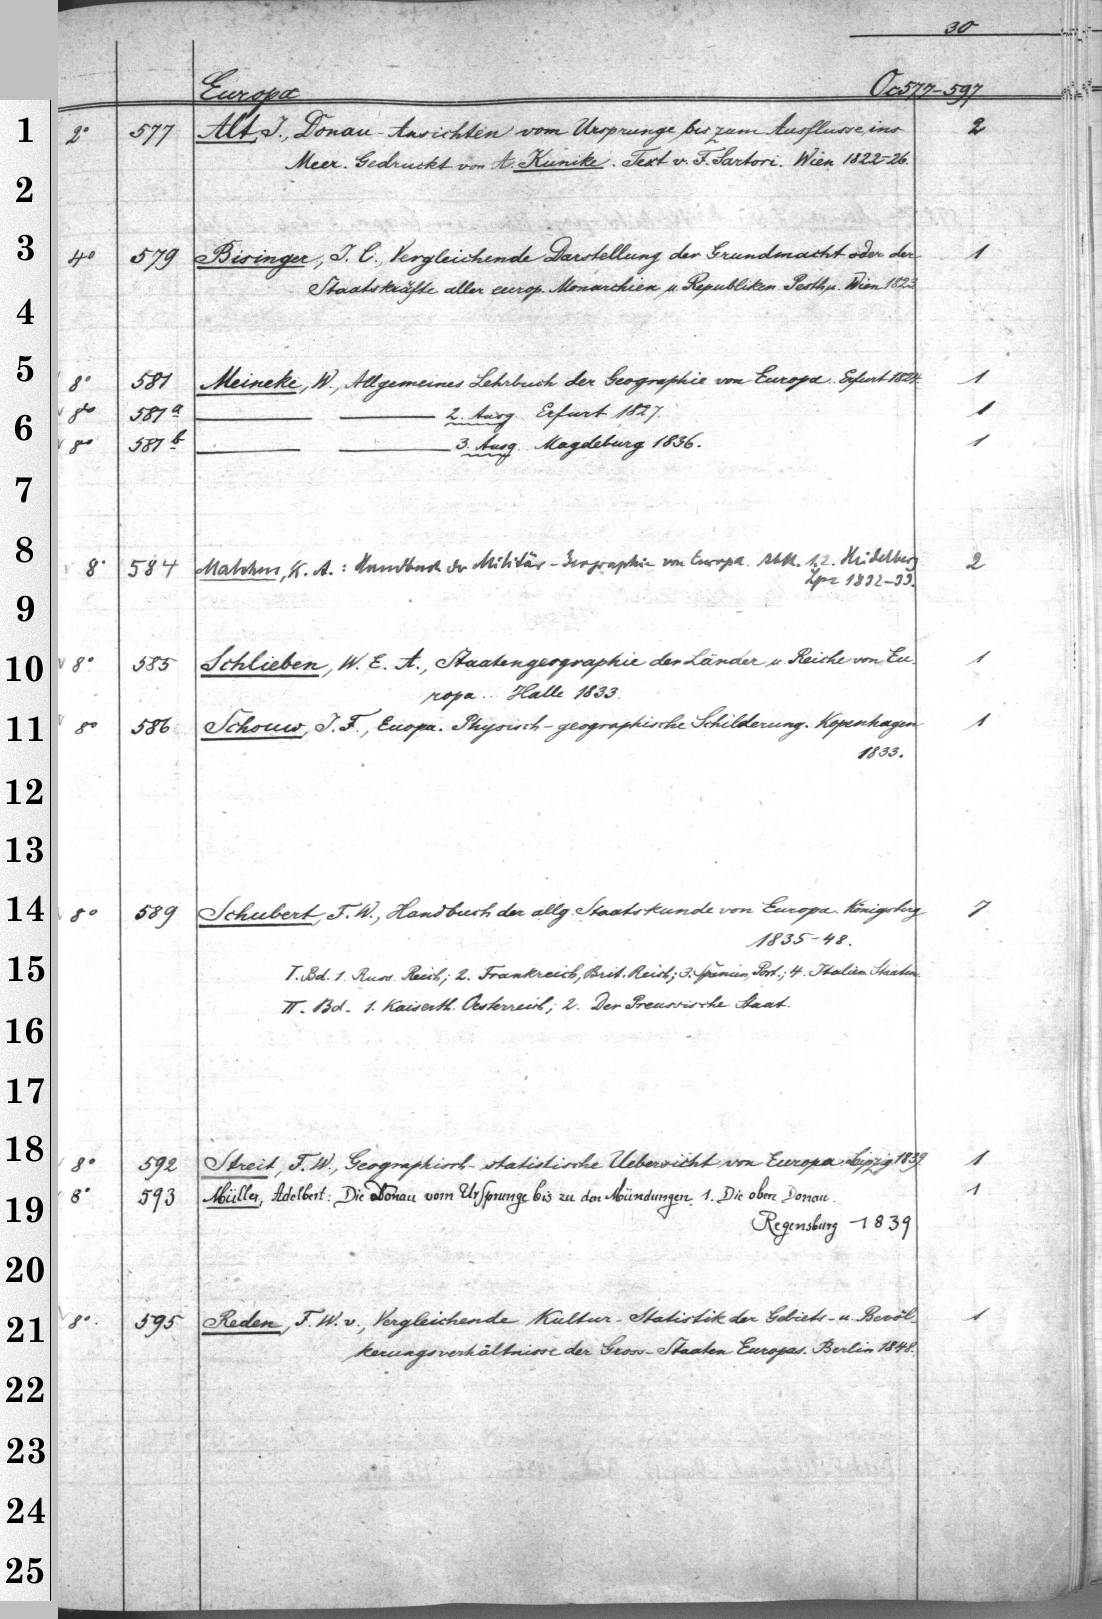 30
Europa Oc 577-597
1 2° 577 Alt, J., Donau-Ansichten vom Ursprunge bis zum Ausflusse ins 2
Meer. Gedruckt von A. Kunike. Text v. F. Sartori. Wien 1822-26.
2
3 4° 579 Bisinger, J. C., Vergleichende Darstellung der Grundmacht oder der 1
Staatskräfte aller europ. Monarchien u. Republiken. Pesth u. Wien 1823
4
5 8° 581 Meineke, W., Allgemeines Lehrbuch der Geographie von Europa. Erfurt 1824. 1
6 8° 581a 2. Ausg. Erfurt 1827. 1
8° 581b 3. Ausg. Magdeburg 1836. 1
7
8 8° 584 Malchus, K. A.: Handbuch der Militär-Geographie von Europa. Abth. 1.2. Heidelberg 2
Lpz 1832-33.
9
10 8° 585 Schlieben, W. E. A., Staatengeographie der Länder u. Reiche von Eu- 1
ropa. Halle 1833.
11 8° 586 Schouw, J. F., Euopa. Physisch-geographische Schilderung. Kopenhagen 1
1833.
12
13
14 8° 589 Schubert, F. W., Handbuch der allg. Staatskunde von Europa. Königsberg 7
1835-48.
15 I. Bd. 1. Russ. Reich; 2. Frankreich, Brit. Reich; 3. Spanien, Port.; 4. Italien. Staaten.
II. Bd. 1. Kaiserth. Oesterreich; 2. Der Preussische Staat.
16
17
18 8° 592 Streit, F. W., Geographisch-statistische Uebersicht von Europa. Leipzig 1839 1
19 8° 593 Müller, Adelbert: Die Donau vom Ursprunge bis zu den Mündungen. 1. Die obere Donau. 1
Regensburg 1839
20
21 8°. 595 Reden, F. W. v., Vergleichende Kultur-Statistik der Gebiets- u. Bevöl- 1
kerungsverhältnisse der Gross-Staaten Europas. Berlin 1848.
22
23
24
25